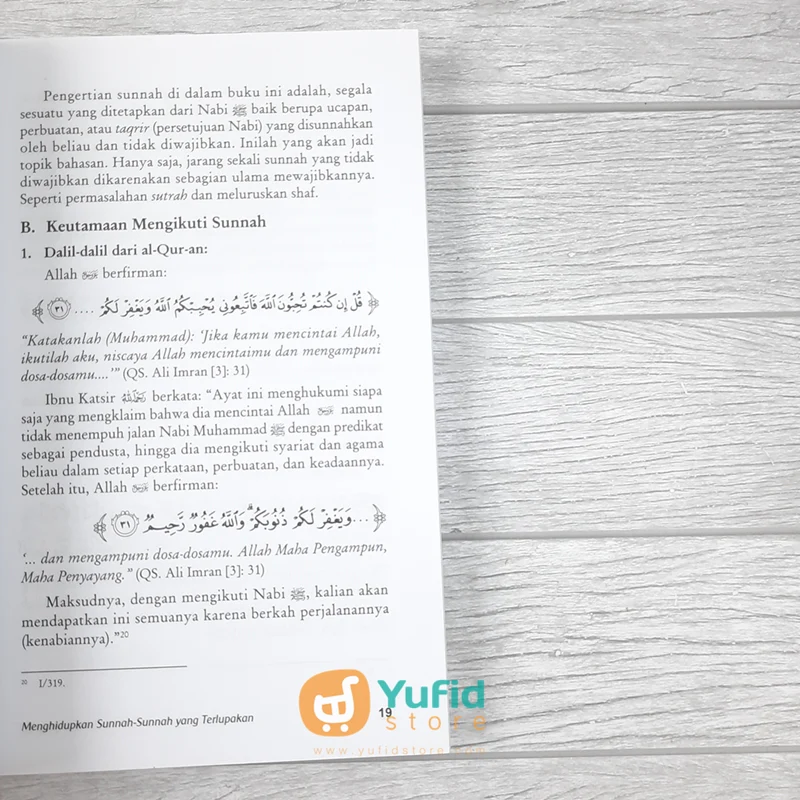 Pengertian sunnah di dalam buku ini adalah, segala
sesuatu yang ditetapkan dari Nabi ﷺ baik berupa ucapan,
perbuatan, atau taqrir (persetujuan Nabi) yang disunnahkan
oleh beliau dan tidak diwajibkan. Inilah yang akan jadi
topik bahasan. Hanya saja, jarang sekali sunnah yang tidak
diwajibkan dikarenakan sebagian ulama mewajibkannya.
Seperti permasalahan sutrah dan meluruskan shaf.
B. Keutamaan Mengikuti Sunnah
1. Dalil-dalil dari al-Qur-an:
Allah berfirman:
﴿ قُلْ إِن كُنتُمْ تُحِبُّونَ ٱللَّهَ فَٱتَّبِعُونِى يُحْبِبْكُمُ ٱللَّهُ وَيَغْفِرْ لَكُمْ .... ٣١ ﴾
“Katakanlah (Muhammad): ‘Jika kamu mencintai Allah,
ikutilah aku, niscaya Allah mencintaimu dan mengampuni
dosa-dosamu....’” (QS. Ali Imran [3]: 31)
Ibnu Katsir berkata: “Ayat ini menghukumi siapa
saja yang mengklaim bahwa dia mencintai Allah namun
tidak menempuh jalan Nabi Muhammad ﷺ dengan predikat
sebagai pendusta, hingga dia mengikuti syariat dan agama
beliau dalam setiap perkataan, perbuatan, dan keadaannya.
Setelah itu, Allah berfirman:
﴿ ... وَيَغْفِرْ لَكُمْ ذُنُوبَكُمْ ۗ وَٱللَّهُ غَفُورٌ رَّحِيمٌ ٣١ ﴾
‘... dan mengampuni dosa-dosamu. Allah Maha Pengampun,
Maha Penyayang.” (QS. Ali Imran [3]: 31)
Maksudnya, dengan mengikuti Nabi ﷺ, kalian akan
mendapatkan ini semuanya karena berkah perjalanannya
(kenabiannya).”20
20 I/319.
Menghidupkan Sunnah-Sunnah yang Terlupakan 19
Yufid
store
www.yufidstore.com